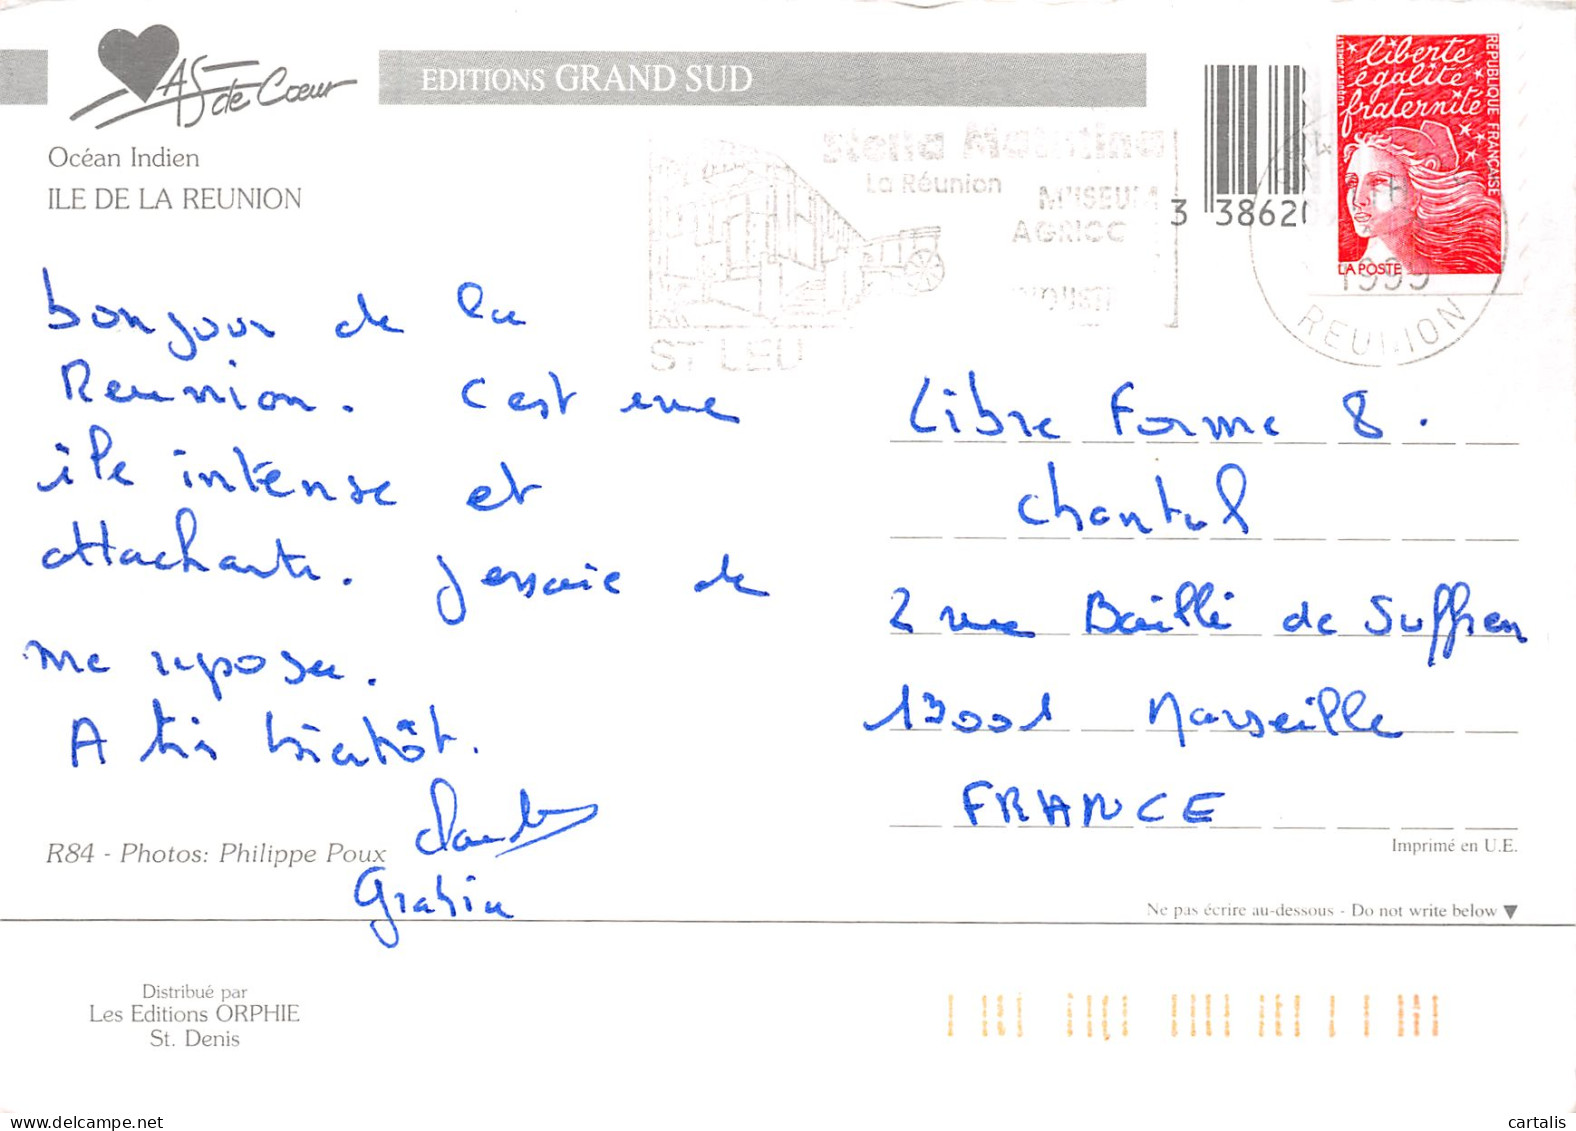 As de Cœur
EDITIONS GRAND SUD
Océan Indien
ILE DE LA REUNION
Stella Matutina
La Réunion
MUSEUM
AGRICO
ST LEU
3 38620
liberté
égalité
fraternité
REPUBLIQUE FRANÇAISE
LA POSTE
1999
REUNION
bonjour de la
Reunion. C'est une
île intense et
attachante. J'essaie de
me reposer.
A très bientôt.
Libre Forme 8.
Chantal
2 rue Bailli de Suffren
13001 Marseille
FRANCE
R84 - Photos: Philippe Poux
Imprimé en U.E.
Ne pas écrire au-dessous - Do not write below ▼
Distribué par
Les Editions ORPHIE
St. Denis
cartalis